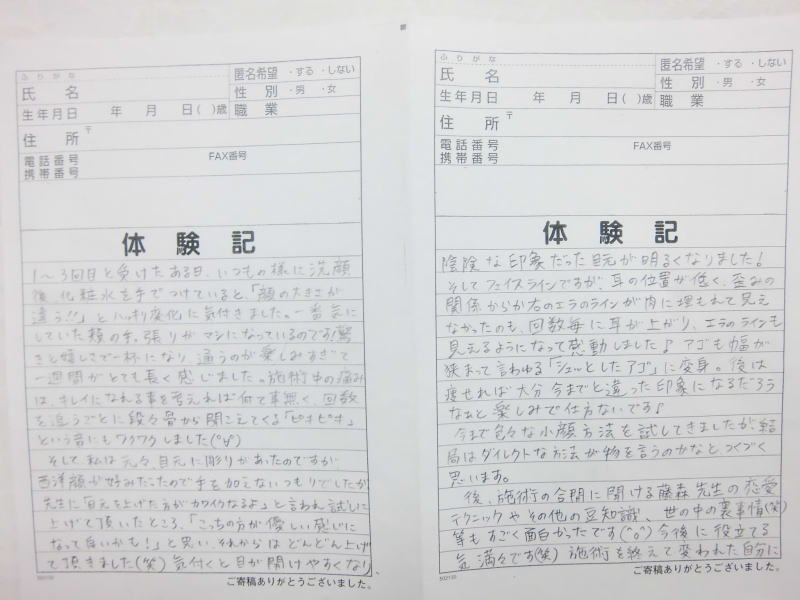 ふりがな
氏 名
匿名希望 ・する ・しない
性 別 ・男 ・女
生年月日 年 月 日( )歳
職 業
住 所 〒
電話番号
携帯番号
FAX番号
体 験 記
1～3回目と受けたある日、いつもの様に洗顔
後、化粧水を手でつけていると、「顔の大きさが
違う!!」とハッキリ変化に気付きました。一番気に
していた頬の張りがマシになっているのです!驚
きと嬉しさで一杯になり、通うのが楽しみすぎて
一週間がとても長く感じました。施術中の痛み
は、キレイになれる事を考えれば何て事無く、回数
を追うごとに段々骨から聞こえてくる「ピキピキ」
という音にもワクワクしました(°∀°)
そして私は元々、目元に彫りがあったのですが
西洋顔が好みだったので手を加えないつもりでしたが、
先生に「目元を上げた方がカワイクなるよ」と言われ試しに
上げて頂いたところ、「こっちの方が優しい感じに
なって良いかも!」と思い、それからはどんどん上げ
て頂きました(笑) 気付くと目が開けやすくなり、
502130
ご寄稿ありがとうございました。
ふりがな
氏 名
匿名希望 ・する ・しない
性 別 ・男 ・女
生年月日 年 月 日( )歳
職 業
住 所 〒
電話番号
携帯番号
FAX番号
体 験 記
陰険な印象だった目元が明るくなりました!
そしてフェイスラインですが、耳の位置が低く、歪みの
関係からか右のエラのラインが肉に埋もれて見え
なかったのも、回数毎に耳が上がり、エラのラインも
見えるようになって感動しました♪ アゴも幅が
狭まって言わゆる「シュッとしたアゴ」に変身。後は
痩せれば大分今までと違った印象になるだろう
なぁと楽しみで仕方ないです♪
今まで色々な小顔方法を試してきましたが、結
局はダイレクトな方法が物を言うのかなと、つくづく
思います。
後、施術の合間に聞ける藤森先生の恋愛
テクニックやその他の豆知識、世の中の裏事情(笑)
等もすごく面白かったです(°o°) 今後に役立てる
気満々です(笑) 施術を終えて変われた自分に
502130
ご寄稿ありがとうございました。